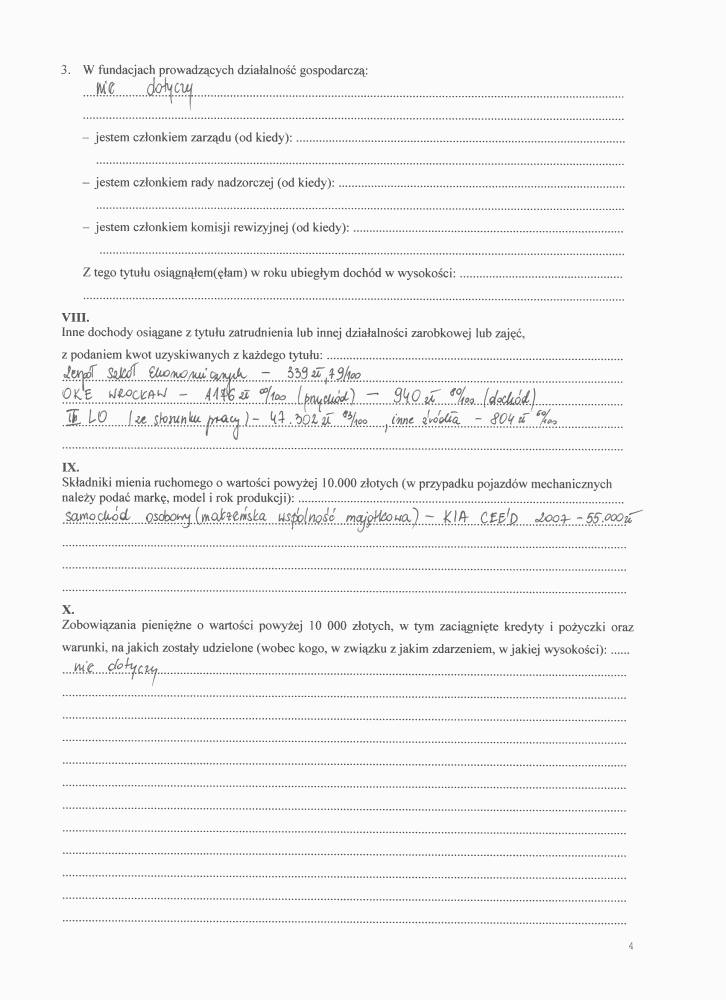 3. W fundacjach prowadzących działalność gospodarczą:
nie dotyczy
– jestem członkiem zarządu (od kiedy):
– jestem członkiem rady nadzorczej (od kiedy):
– jestem członkiem komisji rewizyjnej (od kiedy):
Z tego tytułu osiągnąłem(ęłam) w roku ubiegłym dochód w wysokości:
VIII.
Inne dochody osiągane z tytułu zatrudnienia lub innej działalności zarobkowej lub zajęć,
z podaniem kwot uzyskiwanych z każdego tytułu:
Zespół Szkół Ekonomicznych – 339 zł, 79/100
OKE WROCŁAW – 1176 zł 00/100 (przychód) – 940 zł 80/100 (dochód)
LO (ze stosunku pracy) – 47.302 zł 93/100, inne źródła – 804 zł 60/100
IX.
Składniki mienia ruchomego o wartości powyżej 10.000 złotych (w przypadku pojazdów mechanicznych
należy podać markę, model i rok produkcji):
samochód osobowy (małżeńska wspólność majątkowa) – KIA CEE'D 2007 – 55.000 zł
X.
Zobowiązania pieniężne o wartości powyżej 10 000 złotych, w tym zaciągnięte kredyty i pożyczki oraz
warunki, na jakich zostały udzielone (wobec kogo, w związku z jakim zdarzeniem, w jakiej wysokości): ......
nie dotyczy
4